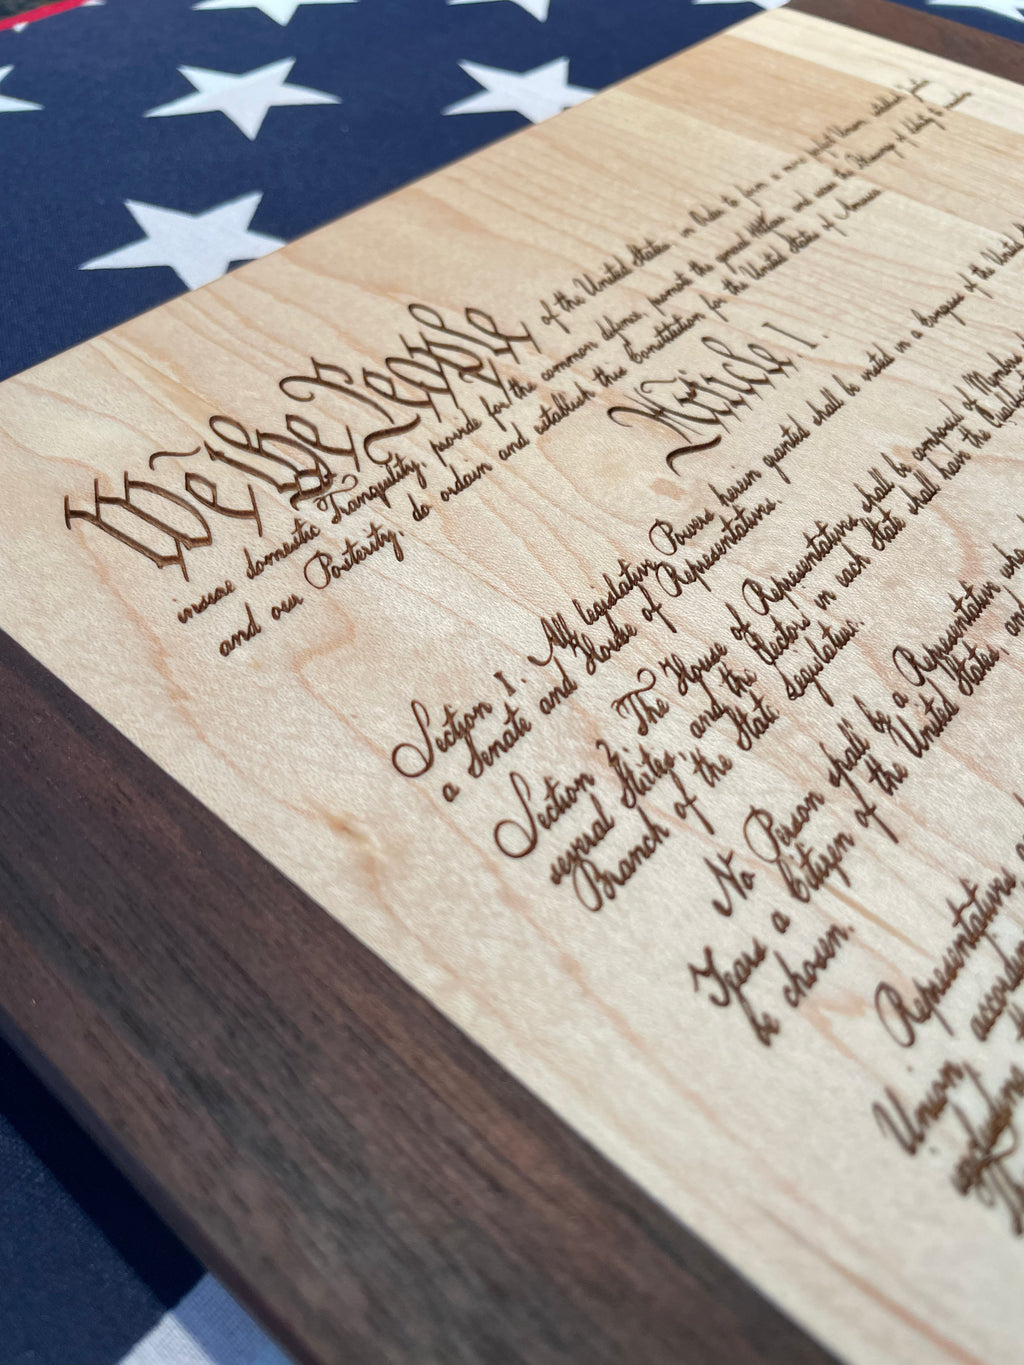 We the People of the United States, in Order to form a more perfect Union, establish Justice
insure domestic Tranquility, provide for the common defence, promote the general Welfare and secure the Blessings of Liberty to
and our Posterity, do ordain and establish this Constitution for the United States of America
Article. I.
Section I. All legislative Powers herein granted shall be vested in a Congress of the United
a Senate and House of Representatives.
Section 2. The House of Representatives shall be composed of Members
several States, and the Electors in each State shall have the
Branch of the State Legislature.
No Person shall be a Representative who
Years a Citizen of the United States, and
be chosen.
Representatives
Union,